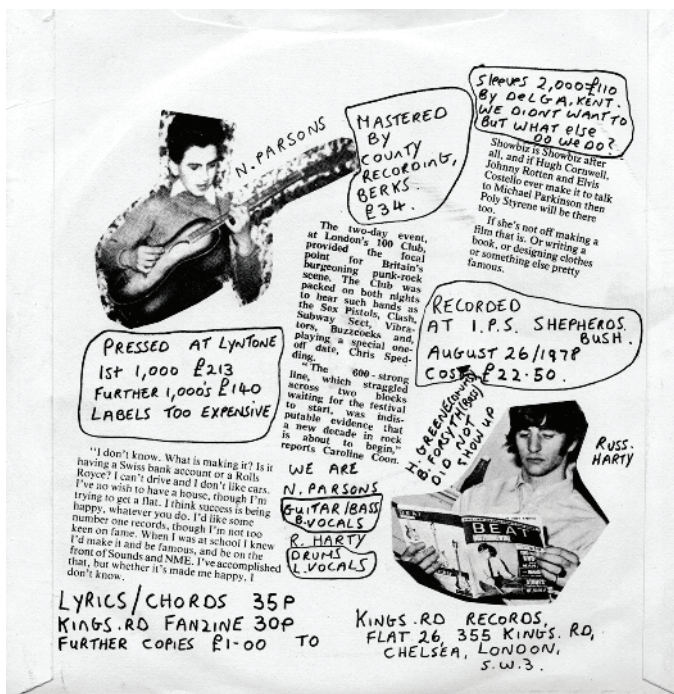 N. PARSONS
MASTERED
BY
COUNTY
RECORDING,
BERKS.
£34.
Sleeves 2,000 £110
BY DELGA, KENT.
WE DIDNT WANT TO
BUT WHAT else
DO WE DO?
Showbiz is Showbiz after
all, and if Hugh Cornwell,
Johnny Rotten and Elvis
Costello ever make it to talk
to Michael Parkinson then
Poly Styrene will be there
too.
If she's not off making a
film that is. Or writing a
book, or designing clothes
or something else pretty
famous.
The two-day event,
at London's 100 Club,
provided the focal
point for Britain's
burgeoning punk-rock
scene. The Club was
packed on both nights
to hear such bands as
the Sex Pistols, Clash,
Subway Sect, Vibra-
tors, Buzzcocks and,
playing a special one-
off date, Chris Sped-
ding.
"The 600-strong
line, which straggled
across two blocks
waiting for the festival
to start, was indis-
putable evidence that
a new decade in rock
is about to begin,"
reports Caroline Coon.
RECORDED
AT I.P.S. SHEPHERDS.
BUSH.
AUGUST 26/1978
COST £22.50.
PRESSED AT LYNTONE
1st 1,000 £213
FURTHER 1,000's £140
LABELS TOO EXPENSIVE
H. GREENE
B. FORSYTH
DID NOT
SHOW UP
RUSS.
HARTY
BEAT
"I don't know. What is making it? Is it
having a Swiss bank account or a Rolls
Royce? I can't drive and I don't like cars.
I've no wish to have a house, though I'm
trying to get a flat. I think success is being
happy, whatever you do. I'd like some
number one records, though I'm not too
keen on fame. When I was at school I knew
I'd make it and be famous, and be on the
front of Sounds and NME. I've accomplished
that, but whether it's made me happy, I
don't know.
WE ARE
N. PARSONS
GUITAR/BASS
B.VOCALS
R. HARTY
DRUMS
L.VOCALS
LYRICS/CHORDS 35P
KINGS.RD FANZINE 30P
FURTHER COPIES £1-00 TO
KINGS.RD RECORDS,
FLAT 26, 355 KINGS.RD,
CHELSEA, LONDON,
S.W.3.